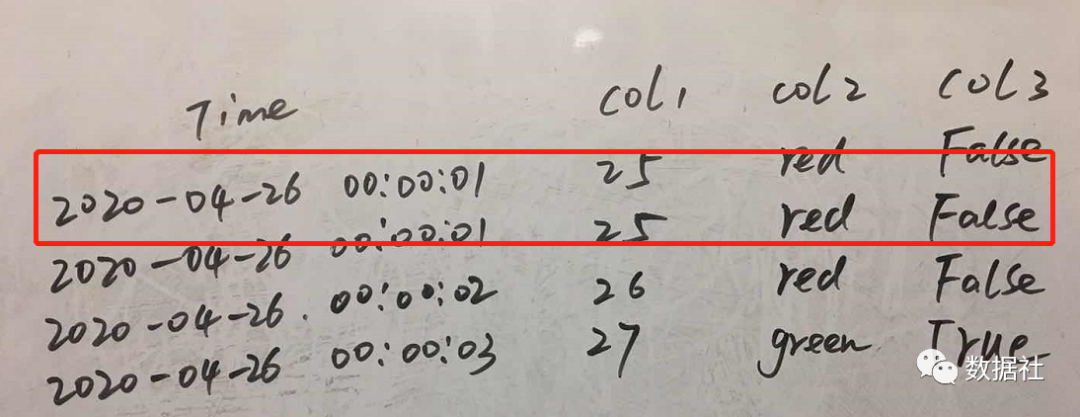 Time col1 col2 col3
2020-04-26 00:00:01 25 red False
2020-04-26 00:00:01 25 red False
2020-04-26. 00:00:02 26 red False
2020-04-26 00:00:03 27 green True
数据社